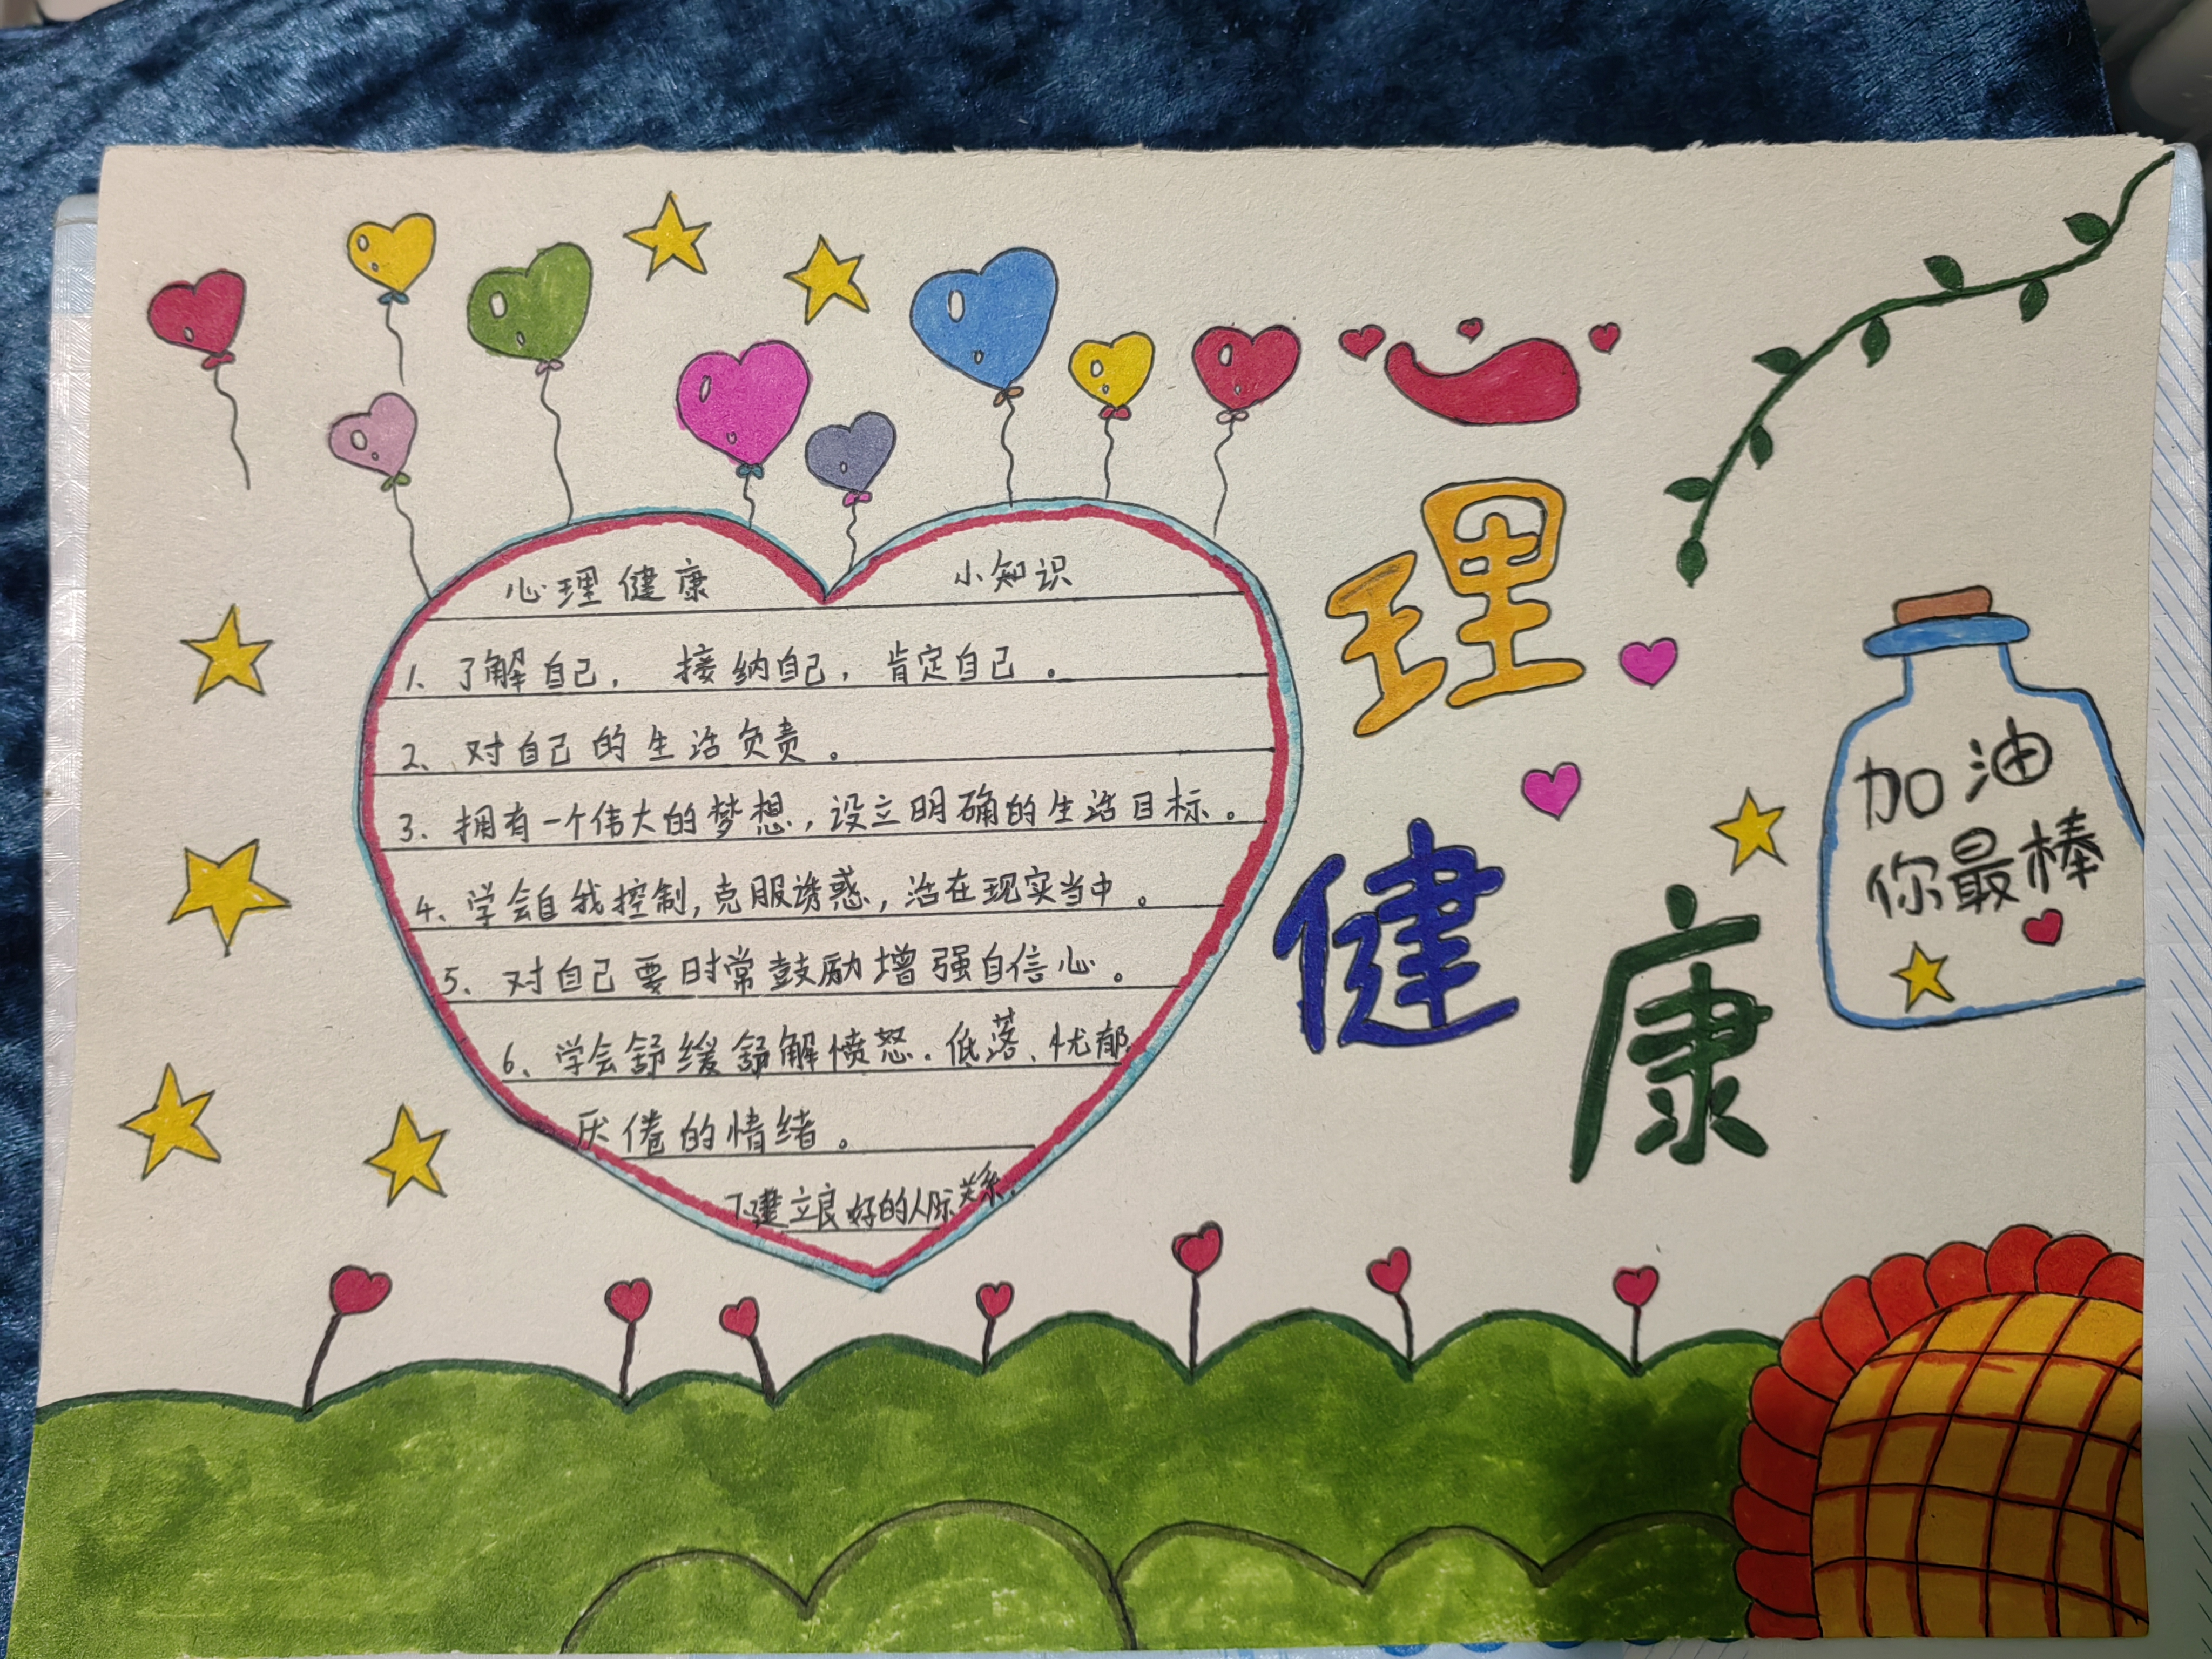 心理健康 小知识
1、了解自己， 接纳自己，肯定自己。
2、对自己的生活负责。
3、拥有一个伟大的梦想，设立明确的生活目标。
4、学会自我控制，克服诱惑，活在现实当中。
5、对自己要时常鼓励增强自信心。
6、学会舒缓舒解愤怒、低落、忧郁、
厌倦的情绪。
7、建立良好的人际关系。
心
理
健
康
加油
你最棒